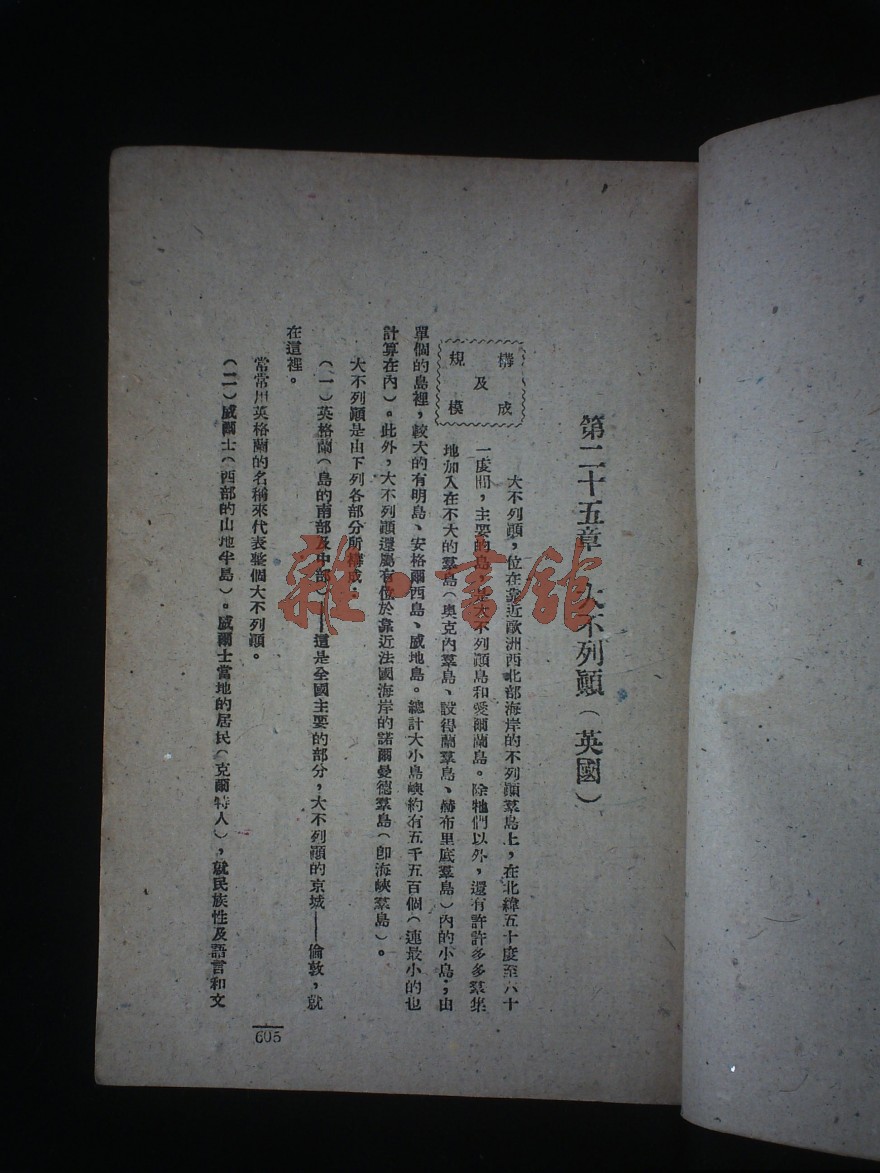 第二十五章　大不列顚（英國）
構成
及
規模
大不列顚，位在靠近歐洲西北部海岸的不列顚羣島上，在北緯五十度至六十
一度間，主要的島，是大不列顚島和愛爾蘭島。除牠們以外，還有許許多多羣集
地加入在不大的羣島（奧克內羣島、設得蘭羣島、赫布里底羣島）內的小島；由
單個的島裡，較大的有明島、安格爾西島、威地島。總計大小島嶼約有五千五百個（連最小的也
計算在內）。此外，大不列顚還屬有位於靠近法國海岸的諾爾曼德羣島（卽海峽羣島）。
大不列顚是由下列各部分所構成：
（一）英格蘭（島的南部及中部）——這是全國主要的部分，大不列顚的京城——倫敦，就
在這裡。
當常用英格蘭的名稱來代表整個大不列顚。
（二）威爾士（西部的山地半島）。威爾士當地的居民（克爾特人），就民族性及語言和文
605
雜·書館